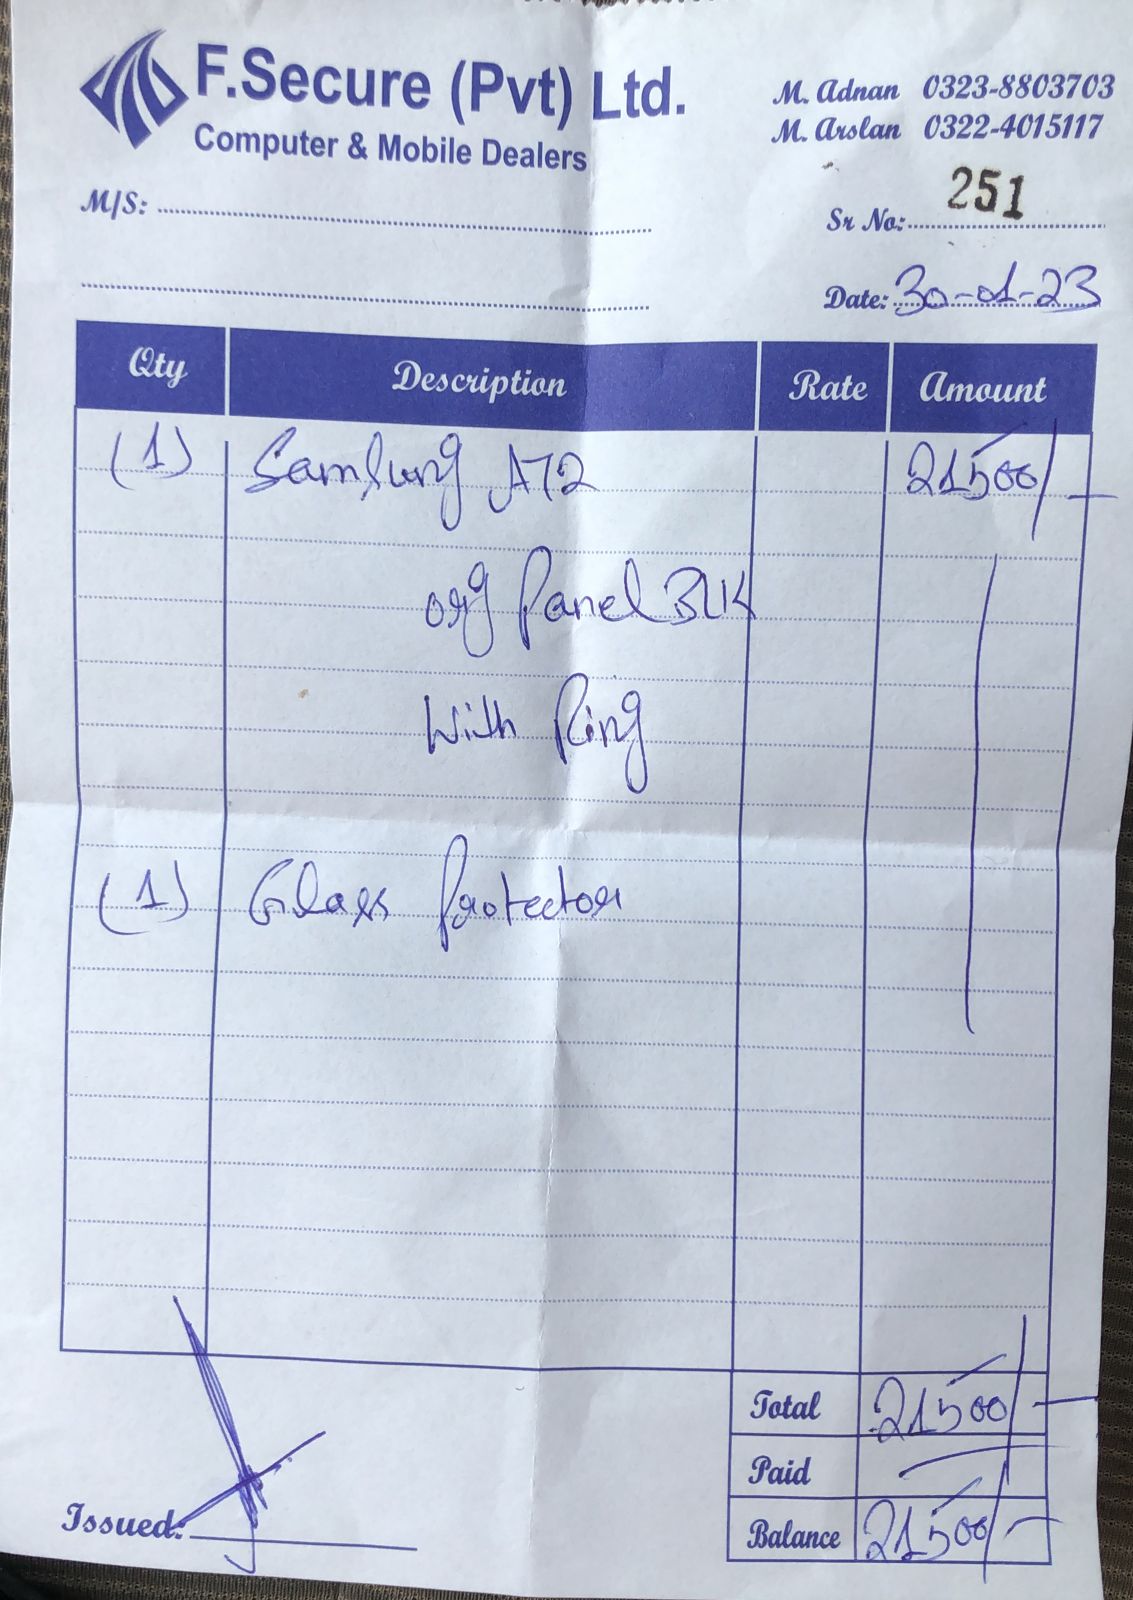 F.Secure (Pvt) Ltd.
Computer & Mobile Dealers
M. Adnan 0323-8803703
M. Arslan 0322-4015117
M/S:
Sr No: 251
Date: 30-01-23
Qty Description Rate Amount
(1) Samsung A72 21500/-
org Panel BLK
With Ring
(1) Glass Protector
Total 21500/-
Paid
Balance 21500/-
Issued: